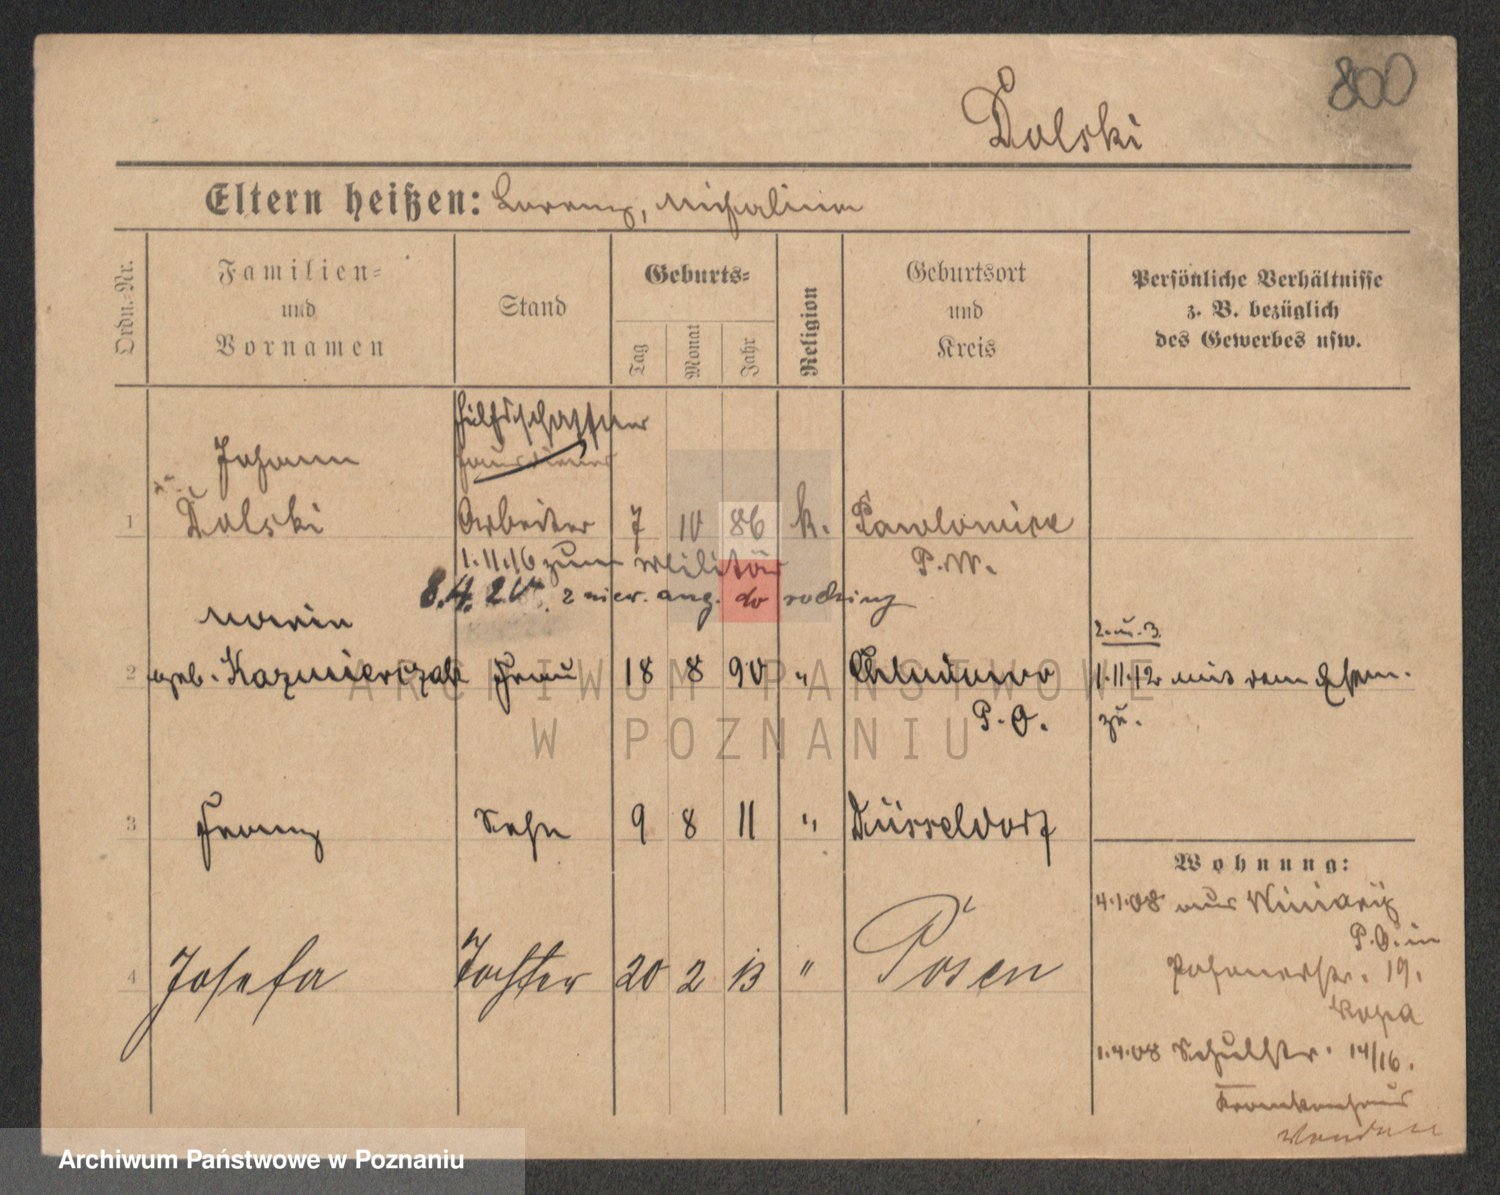 800
Dolski
Eltern heißen: Lorenz, Michalina
Ordn.-Nr.
Familien-
und
Vornamen
Stand
Geburts-
Tag
Monat
Jahr
Religion
Geburtsort
und
Kreis
Persönliche Verhältnisse
z. B. bezüglich
des Gewerbes usw.
Hilfsschaffner
Johann
Hausdiener
1 Dolski Arbeiter 7 10 86 k.
P.W.
1.11.16 zum Militär
8.4.20
do rodziny
Maria
2.u.3.
2 geb. Kazmierczak Frau 18 8 90 "
1.11.12 mit dem Ehem.
P.O.
zu.
3 Franz Sohn 9 8 11 " Düsseldorf
Wohnung:
4.1.08 aus Winiary
P.O. in
4 Josefa Tochter 20 2 13 " Posen
Posenerstr. 19.
1.4.08 Schulstr. 14/16.
Krankenhaus
Wenden
ARCHIWUM PAŃSTWOWE
W POZNANIU
Archiwum Państwowe w Poznaniu